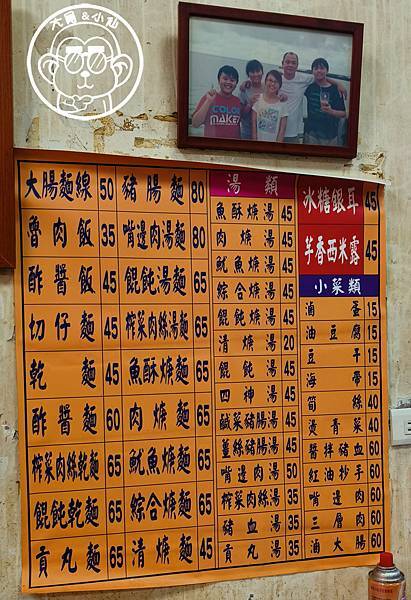 大哥&小仙
COLOR
MAKER
大腸麵線 50
魯肉飯 35
酢醬飯 45
切仔麵 45
乾麵 45
酢醬麵 60
榨菜肉絲乾麵 65
餛飩乾麵 65
貢丸麵 65
豬腸麵 80
嘴邊肉湯麵 80
餛飩湯麵 65
榨菜肉絲湯麵 65
魚酥焿麵 65
肉焿麵 65
魷魚焿麵 65
綜合焿麵 65
清焿麵 45
湯類
魚酥焿湯 45
肉焿湯 45
魷魚焿湯 45
綜合焿湯 45
餛飩焿湯 45
清焿湯 20
餛飩湯 45
四神湯 45
鹹菜豬腸湯 45
薑絲豬腸湯 45
嘴邊肉湯 50
榨菜肉絲湯 35
豬血湯 35
貢丸湯 35
冰糖銀耳 45
芋香西米露 45
小菜類
滷蛋 15
油豆腐 15
豆干 15
海帶 15
筍絲 40
燙青菜 40
醬拌豬血 60
紅油抄手 60
嘴邊肉 60
三層肉 60
滷大腸 60